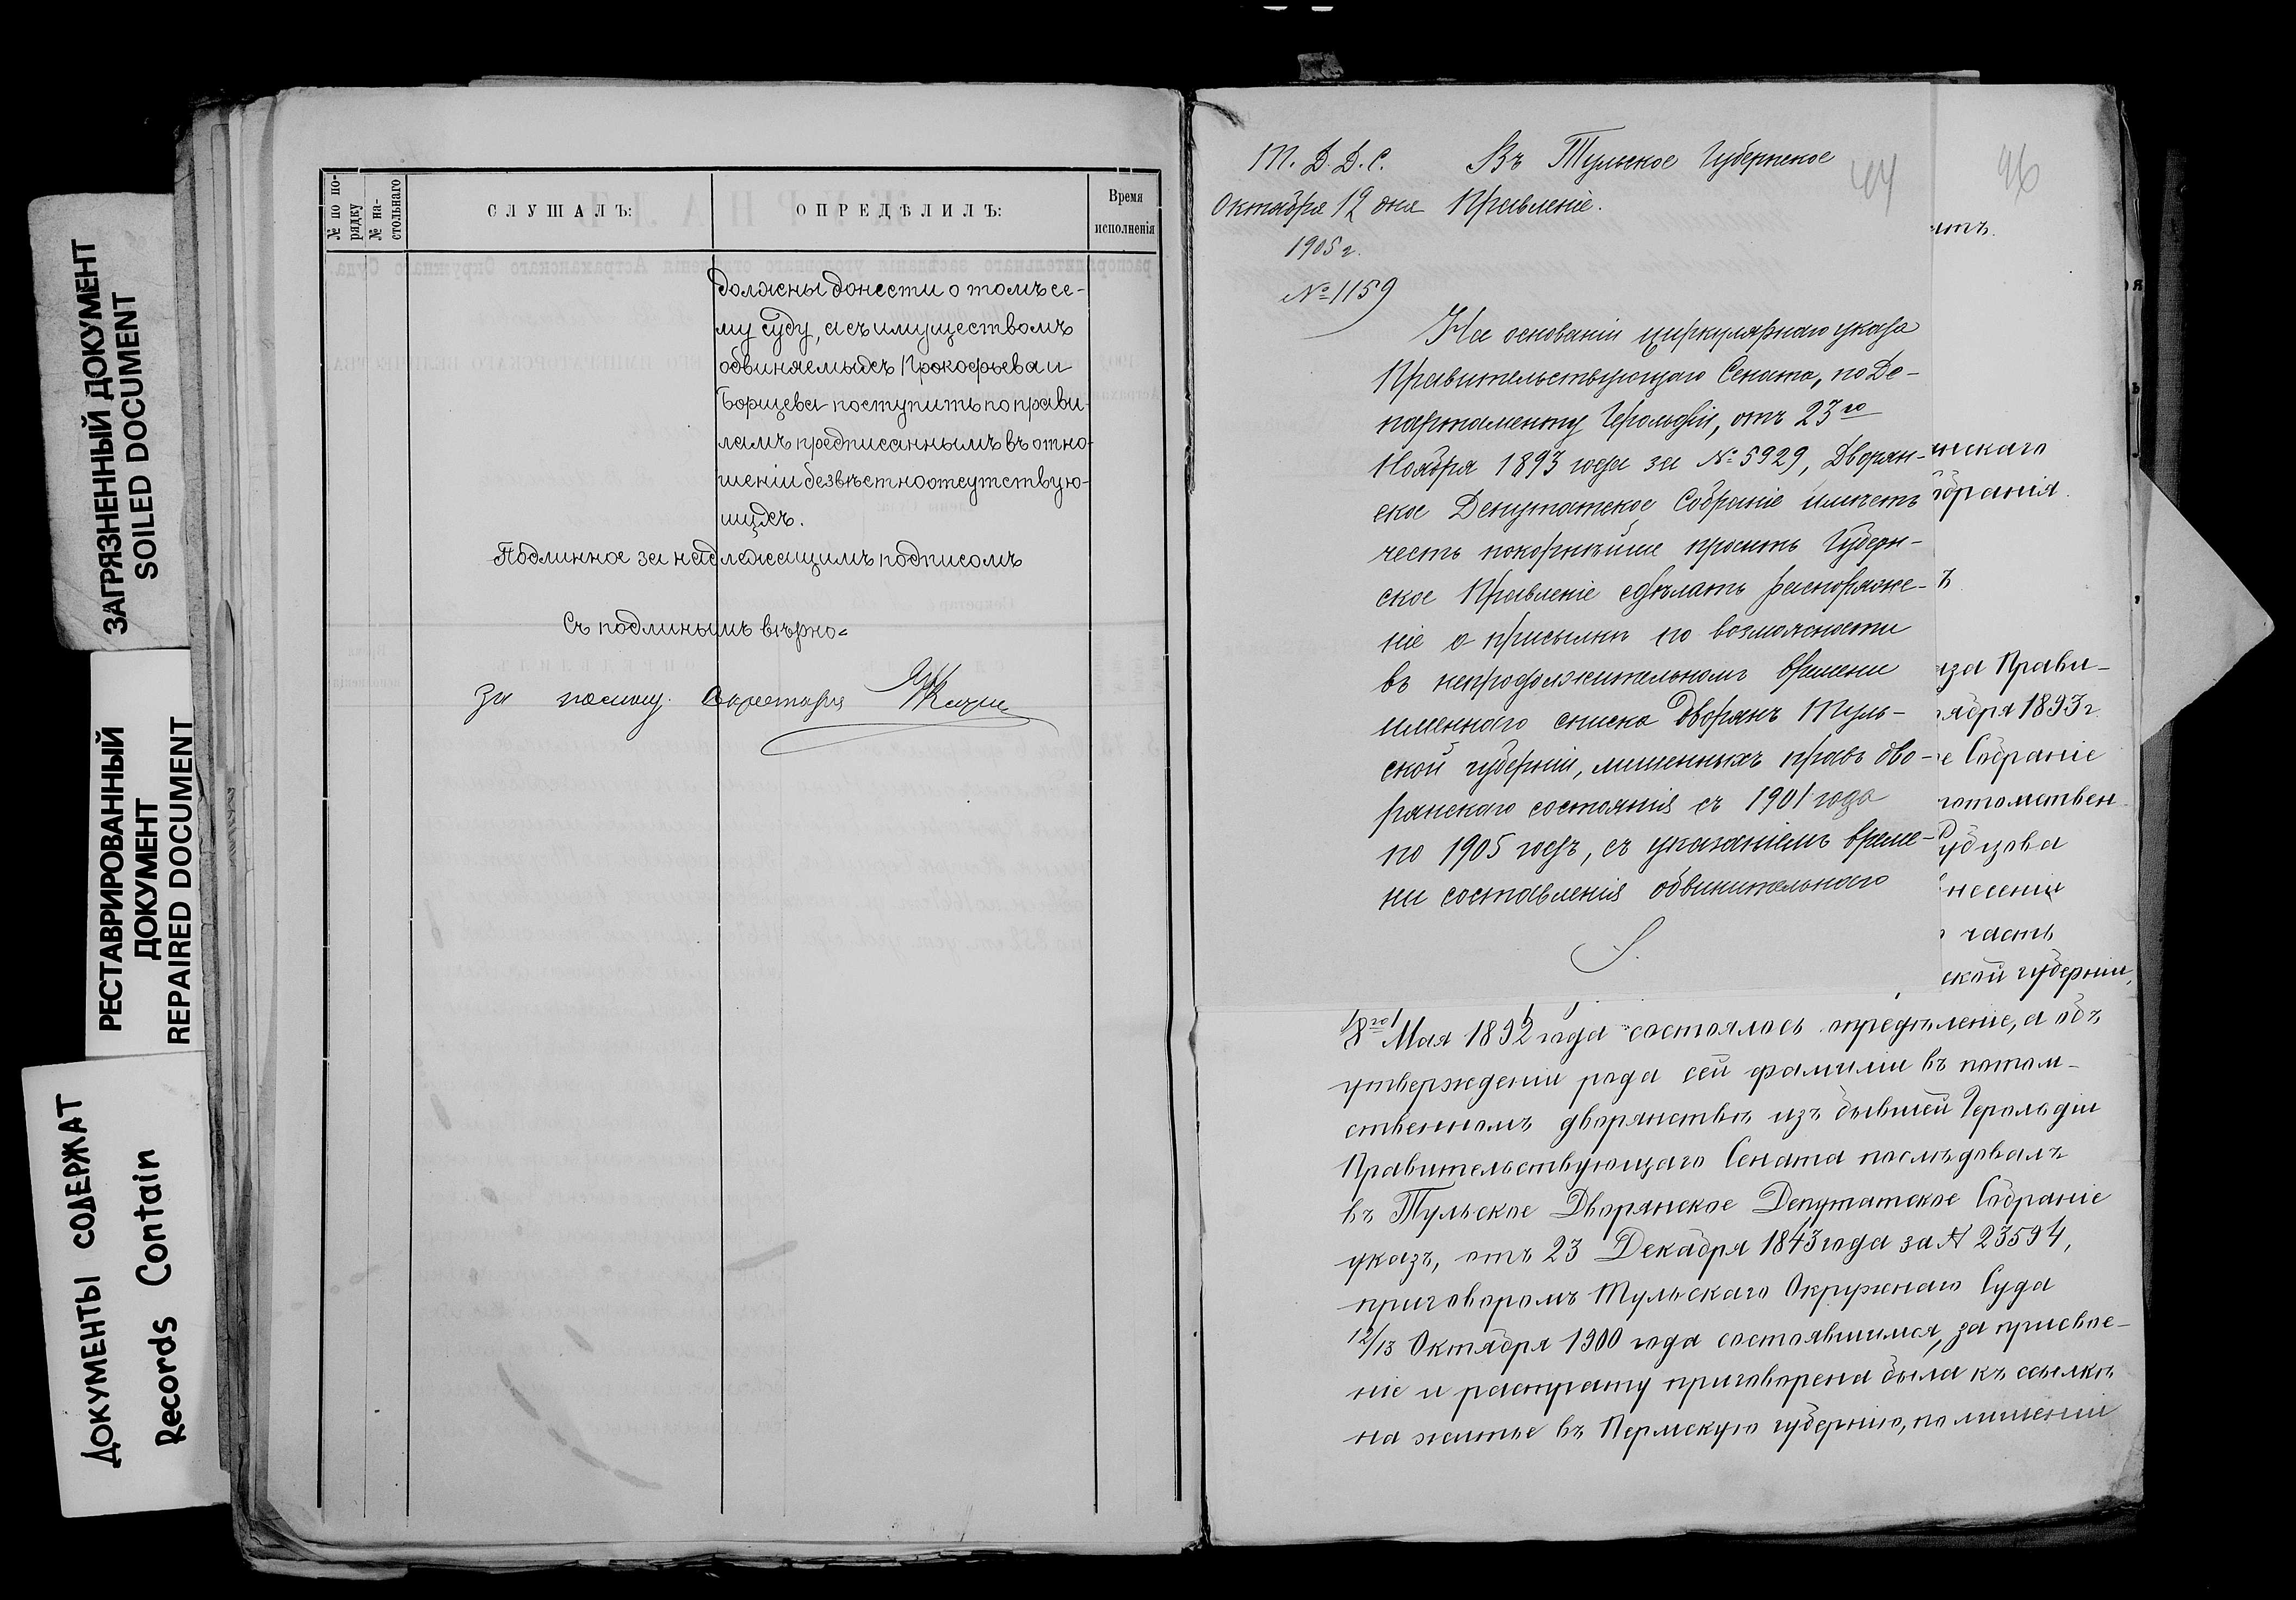 ЗАГРЯЗНЕННЫЙ ДОКУМЕНТ
SOILED DOCUMENT
РЕСТАВРИРОВАННЫЙ
ДОКУМЕНТ
REPAIRED DOCUMENT
ДОКУМЕНТЫ СОДЕРЖАТ
Records Contain
№ по по-
рядку
№ на-
стольнаго
СЛУШАЛЪ:
ОПРЕДѢЛИЛЪ:
Время
исполненія
должны донести о томъ се-
му суду, а съ имуществомъ
обвиняемыхъ Прокофьева и
Борщева поступить по прави-
ламъ предписаннымъ въ отно-
шеніи безвѣстноотсутствую-
щихъ.
Подлинное за надлежащимъ подписомъ
Съ подлинымъ вѣрно=
За помощ. Секретаря
Т. Д. Д. С.
Октября 12 дня
1905 г.
№ 1159
Въ Тульское Губернское
Правленіе.
44
96
На основаніи циркулярнаго указа
Правительствующаго Сената, по Де-
партаменту Герольдіи, отъ 23го
Ноября 1893 года за № 5929, Дворян-
ское Депутатское Собраніе имѣетъ
честь покорнѣйше просить Губерн-
ское Правленіе сдѣлать распоряже-
ніе о присылкѣ по возможности
въ непродолжительномъ времени
именнаго списка дворянъ Туль-
ской губерніи, лишенныхъ правъ дво-
рянскаго состоянія съ 1901 года
по 1905 годъ, съ указаніемъ време-
ни составленія обвинительнаго
нскаго
бранія.
ъ
за Прави-
ября 1893 г.
е Собраніе
потомствен
убцова
несеніи
часть
ской губерніи,
18го Мая 1892 года состоялось опредѣленіе, а объ
утвержденіи рода сей фамиліи въ потом-
ственномъ дворянствѣ изъ бывшей Герольдіи
Правительствующаго Сената послѣдовалъ
въ Тульское Дворянское Депутатское Собраніе
указъ, отъ 23 Декабря 1843 года за № 23594,
приговоромъ Тульскаго Окружнаго Суда
12/13 Октября 1900 года состоявшимся, за присвое-
ніе и растрату приговорена была къ ссылкѣ
на житье въ Пермскую губернію, по лишеніи